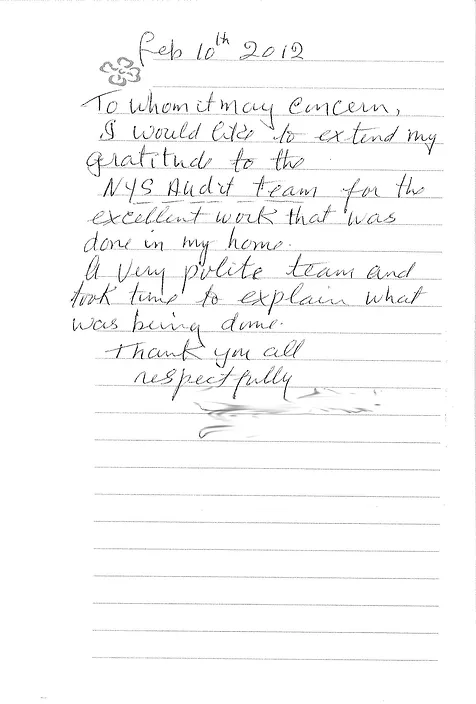 Feb 10th 2012
To whom it may concern,
I would like to extend my
gratitude to the
NYS Audit team for the
excellent work that was
done in my home.
A very polite team and
took time to explain what
was being done.
Thank you all
respectfully